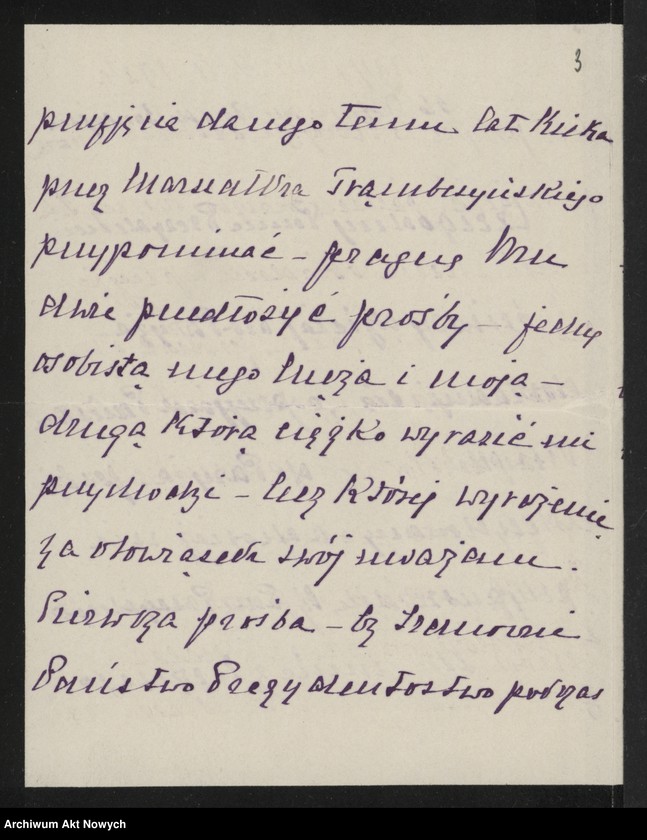 3
przyjęcie danego temu lat kilka
przez Marszałka Trąmbczyńskiego
przypominać – pragnę Mu
dwie przedłożyć prośby – jedną
osobistą mego męża i moją –
drugą którą ciężko wyrazić mi
przychodzi – lecz której wyrażenie
za obowiązek swój uważam.
Pierwsza prośba – by Szanowni
Państwo Prezydentostwo podczas
Archiwum Akt Nowych